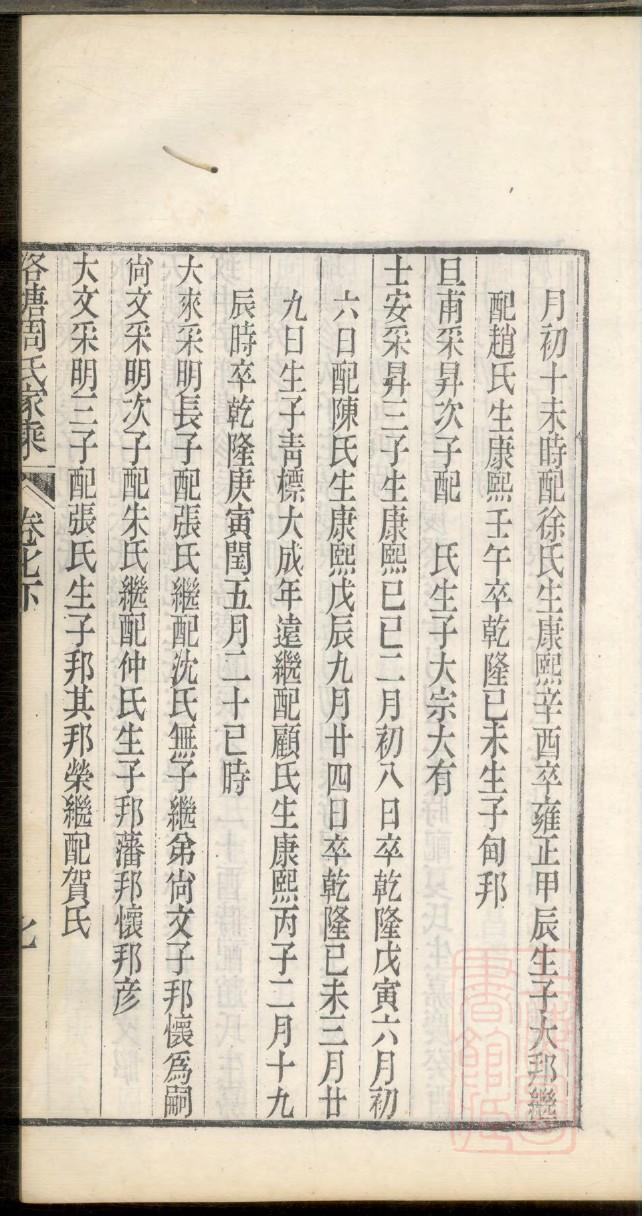 月初十未時配徐氏生康熙辛酉卒雍正甲辰生子大邦繼
配趙氏生康熙壬午卒乾隆已未生子甸邦
旦甫采昇次子配　氏生子大宗大有
士安采昇三子生康熙已巳二月初八日卒乾隆戊寅六月初
六日配陳氏生康熙戊辰九月廿四日卒乾隆已未三月廿
九日生子青標大成年遠繼配顧氏生康熙丙子二月十九
辰時卒乾隆庚寅閏五月二十巳時
大來采明長子配張氏繼配沈氏無子繼弟尙文子邦懷爲嗣
尙文采明次子配朱氏繼配仲氏生子邦藩邦懷邦彦
大文采明三子配張氏生子邦其邦榮繼配賀氏
洛塘周氏家乘　卷七下　七